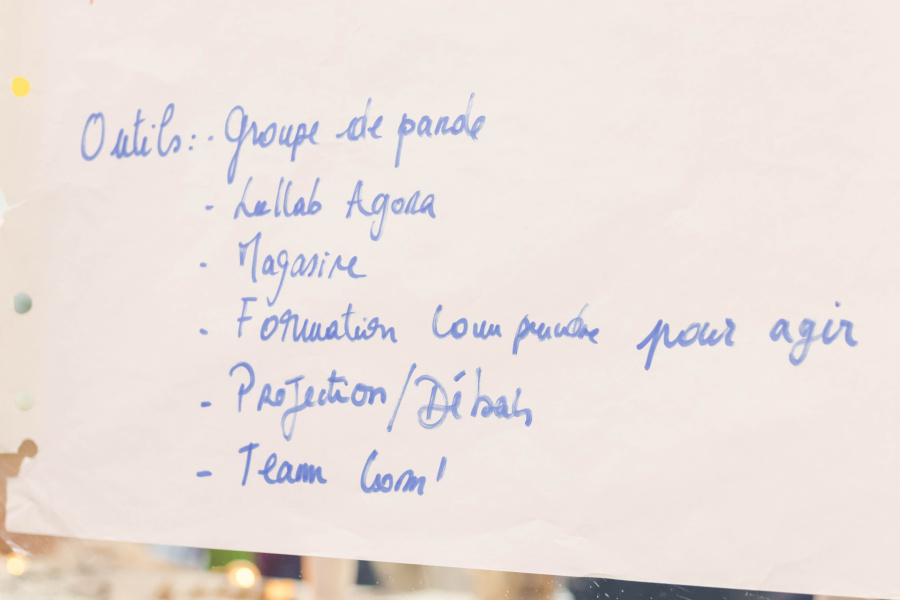 Outils: - Groupe de parole
- Lullab Agora
- Magasine
- Formation Comprendre pour agir
- Projection/Débats
- Team Com'